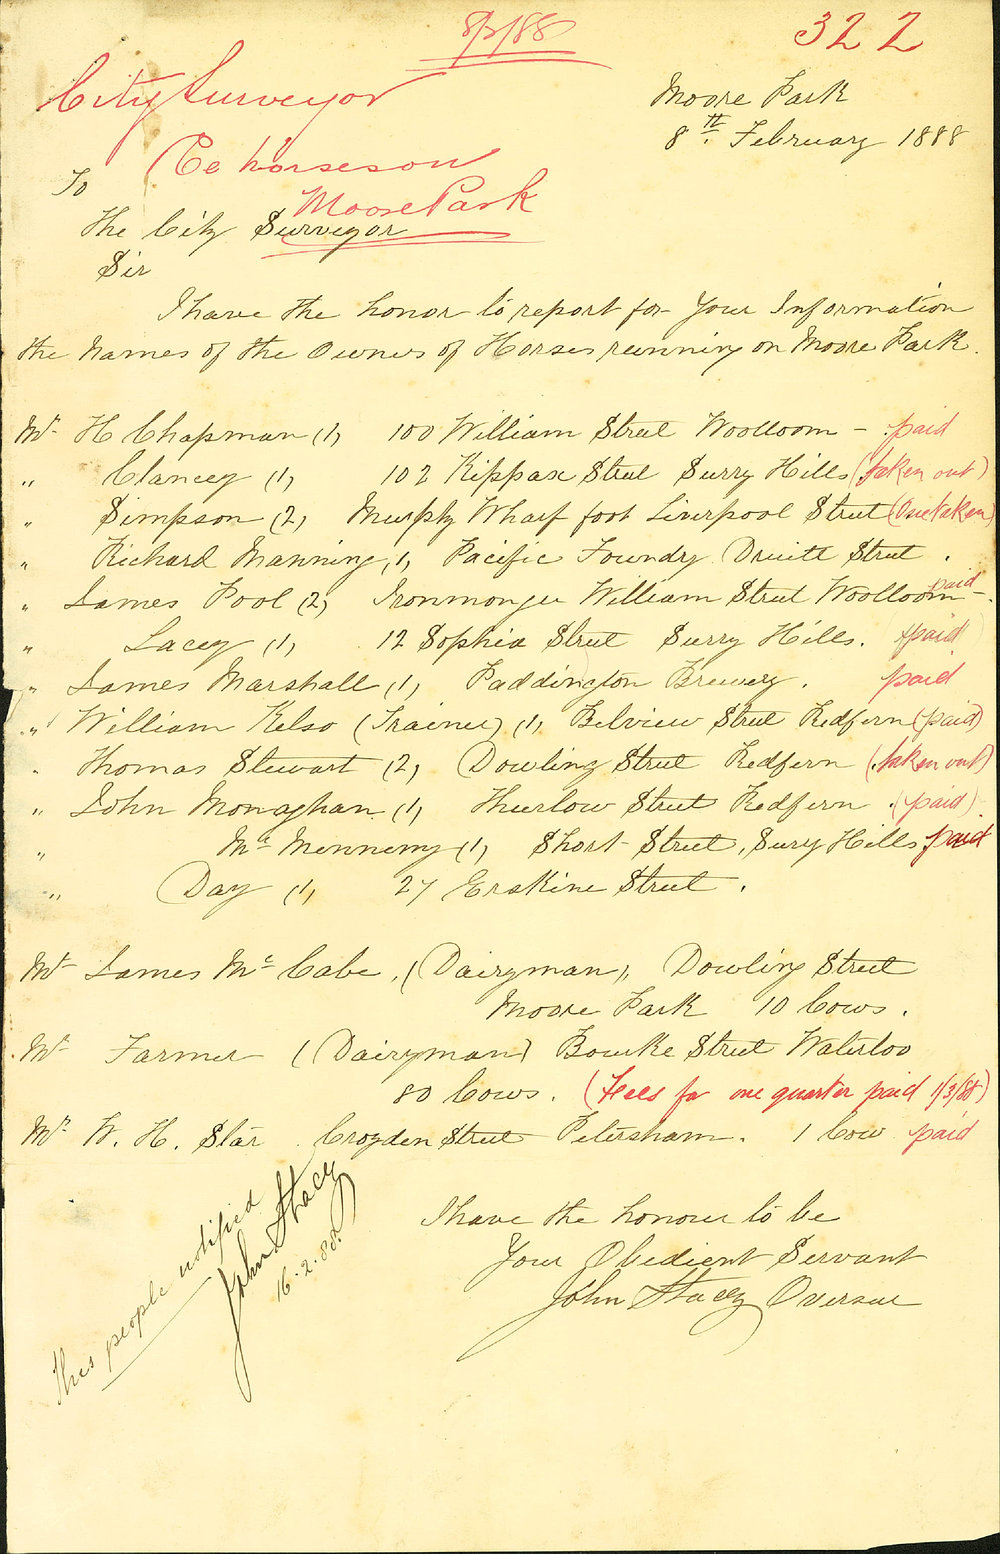 8/2/88
322
City Surveyor
Re horses on
Moore Park
Moore Park
8th February 1888
To
The City Surveyor
Sir
I have the honor to report for Your Information
the Names of the Owners of Horses running on Moore Park.
Mr H Chapman (1) 100 William Street Woolloom – paid
" Clancey (1) 102 Kippax Street Surry Hills (taken out)
" Simpson (2) Murphy Wharf foot Liverpool Street (One taken)
" Richard Manning (1) Pacific Foundry Druitt Street.
" James Pool (2) Ironmonger William Street Woolloom –. paid
" Lacey (1) 12 Sophia Street Surry Hills. (paid)
" James Marshall (1) Paddington Brewery. paid
" William Kelso (Trainer) (1) Belview Street Redfern (paid)
" Thomas Stewart (2) Dowling Street Redfern (taken out)
" John Monaghan (1) Thurlow Street Redfern. (paid)
" Mc Mennemy (1) Short Street, Surry Hills paid
" Day (1) 27 Erskine Street.
Mr James Mc Cabe, (Dairyman), Dowling Street
Moore Park 10 Cows.
Mr Farmer (Dairyman) Bourke Street Waterloo
80 Cows. (Fees for one quarter paid 1/3/88)
Mr W. H. Star Croyden Street Petersham. 1 Cow paid
I have the honour to be
Your Obedient Servant
John Stacey Overseer
This people notified
John Stacey
16.2.88